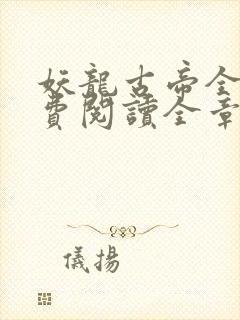 妖龍古帝全
費閱讀全章
儀揚